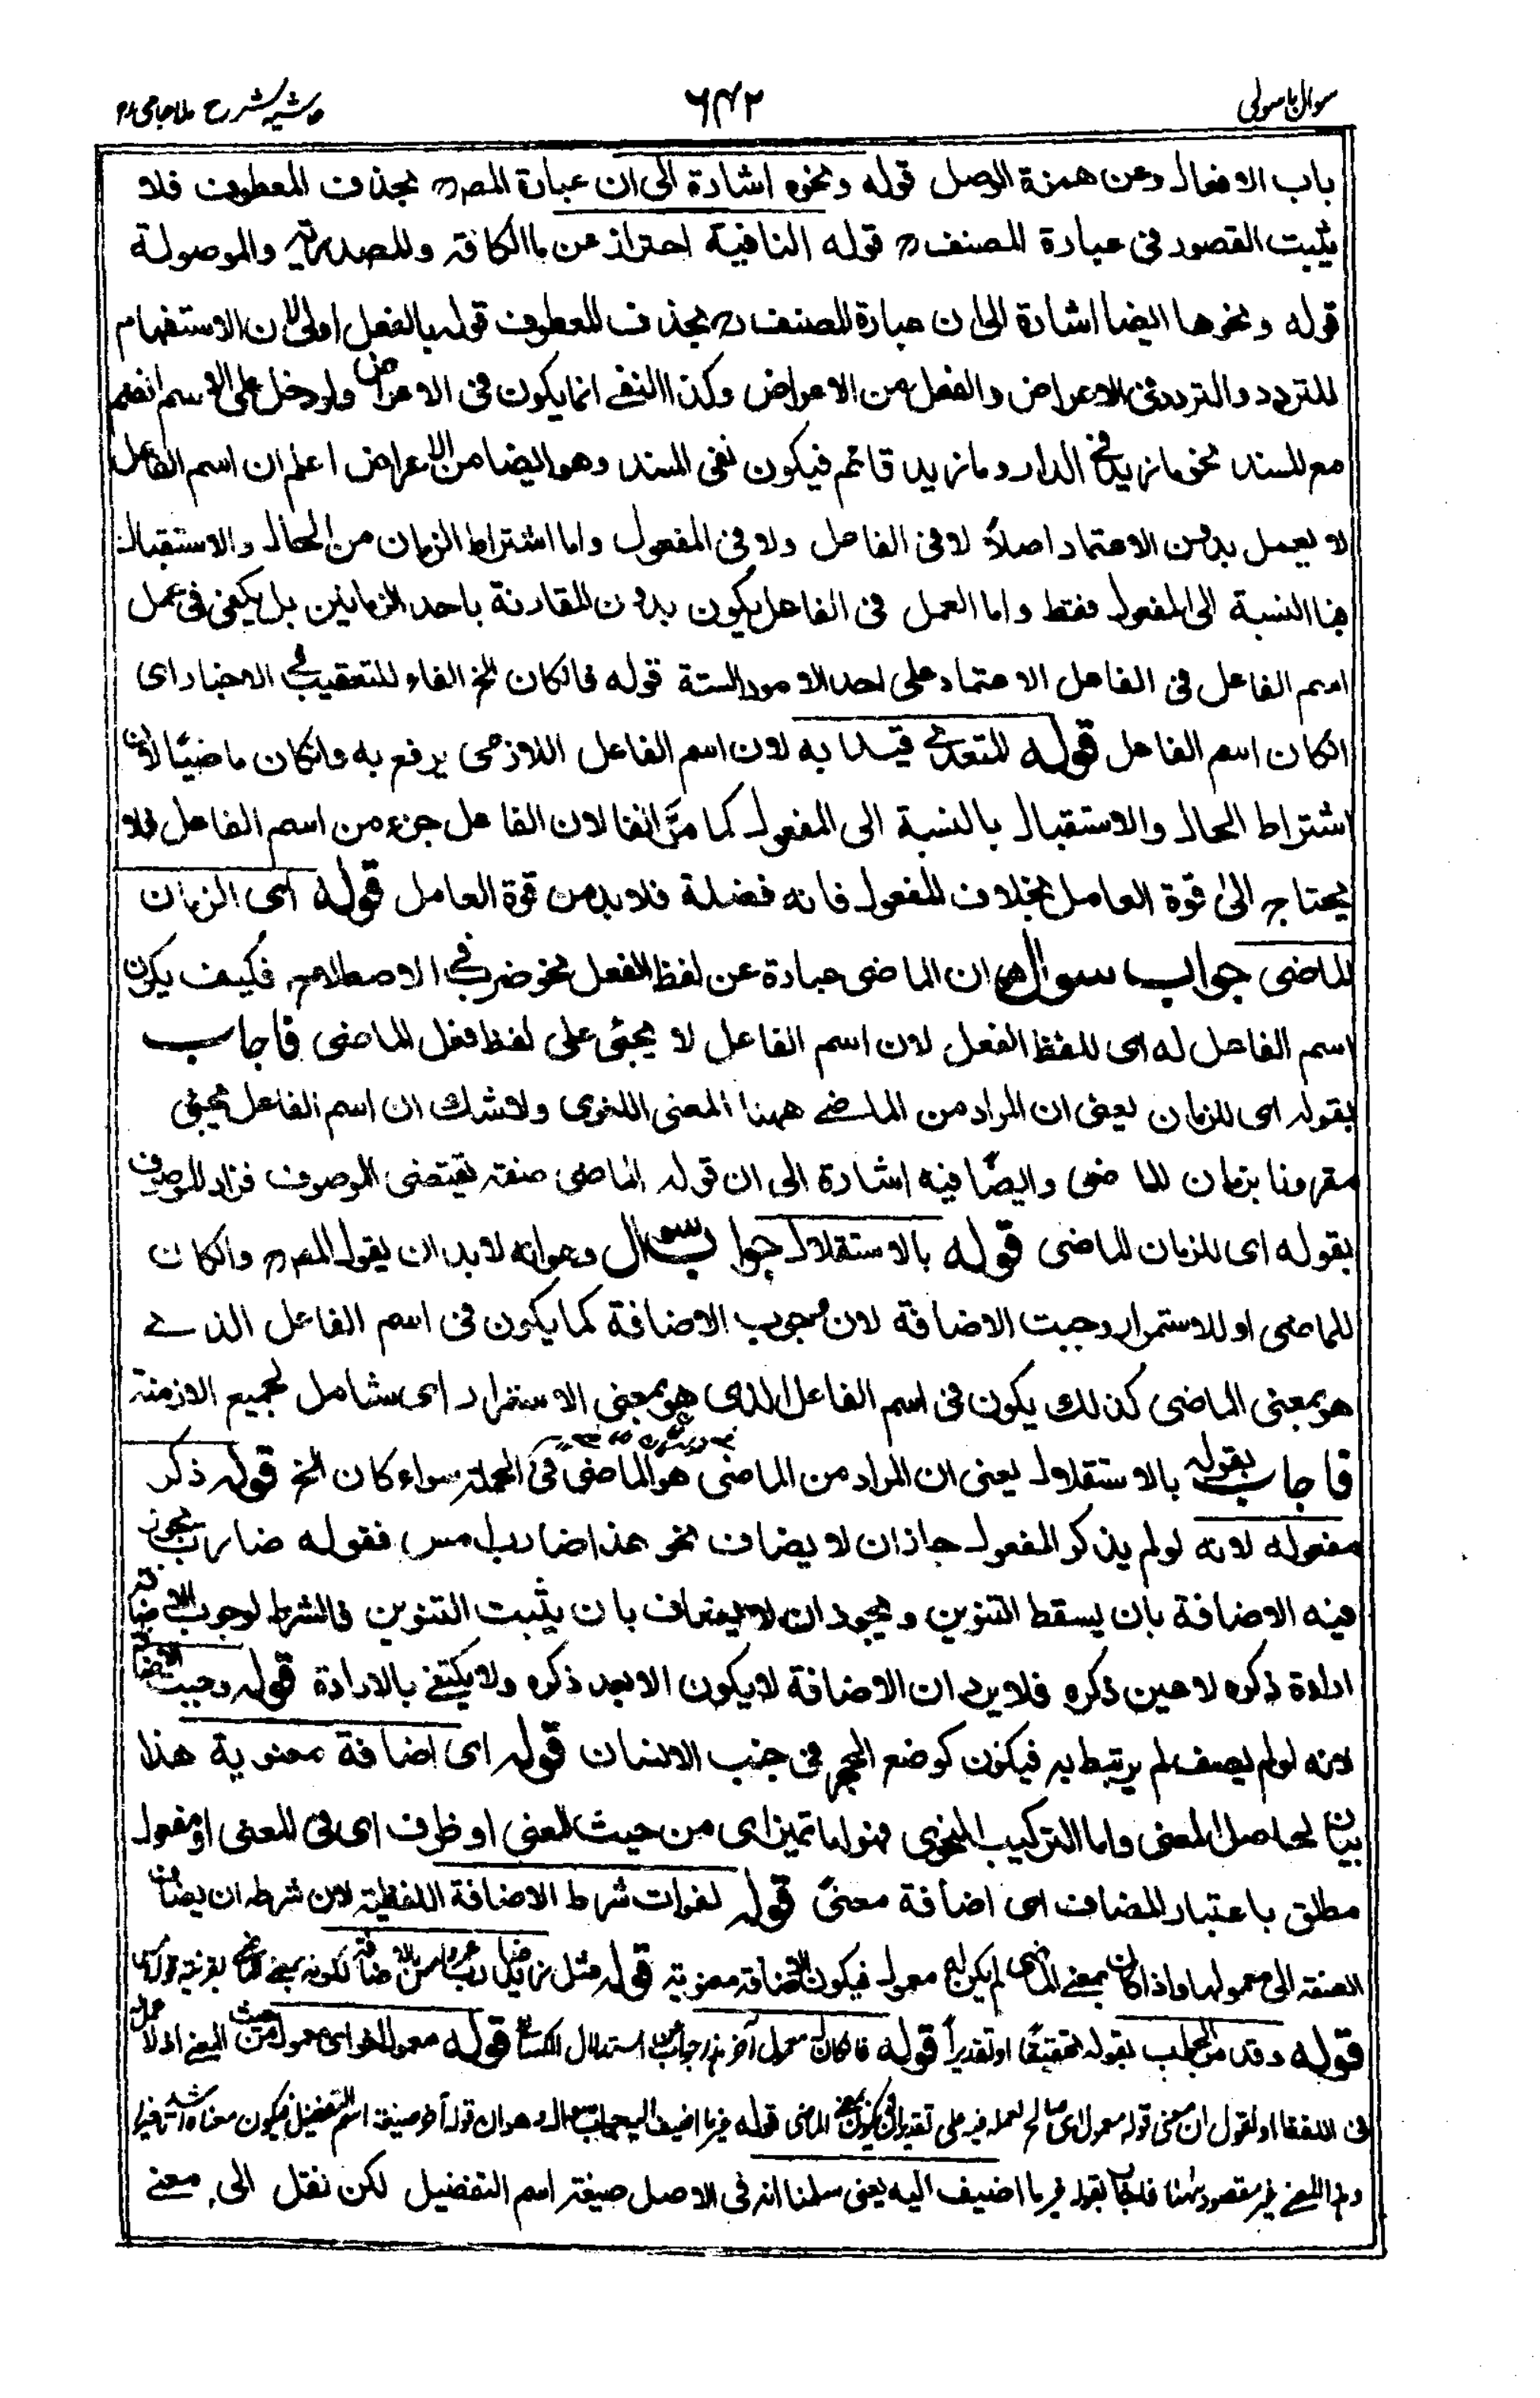 سوال باسولی ٦٤٢ حاشیہ شرح ملا جامی
باب الافعال وعن همزة الوصل قوله ونحوه اشارة الى ان عبارة المصر بحذف المعطوف فلا
يثبت القصور فى عبارة المصنف قوله النافية احتراز عن ما الكافة والمصدرية والموصولة
قوله ونحوها ايضا اشارة الى ان عبارة المصنف بحذف المعطوف قوله بالفعل اولى لان الاستفهام
للتردد والتردد فى الاعراض والفعل من الاعراض وكذا النفى انما يكون فى الاعراض ولو دخل على الاسم انضم
مع المسند نحو ما زيد فى الدار وما زيد قائم فيكون نفى المسند وهو ايضا من الاعراض اعلم ان اسم الفاعل
لا يعمل بدون الاعتماد اصلاً لا فى الفاعل ولا فى المفعول واما اشتراط الزمان من الحال والاستقبال
فبالنسبة الى المفعول فقط واما العمل فى الفاعل يكون بدون المقارنة باحد الزمانين بل يكفى فى عمل
اسم الفاعل فى الفاعل الاعتماد على احد الامور الستة قوله فان كان الخ الفاء للتعقيب فى الاخبار اى
ان كان اسم الفاعل قوله المتعدى قيدنا به لان اسم الفاعل اللازمى يرفع به وان كان ماضيًا لان
اشتراط الحال والاستقبال بالنسبة الى المفعول كما مرّ انفا لان الفاعل جزء من اسم الفاعل فلا
يحتاج الى قوة العامل بخلاف المفعول فانه فضلة فلا بد من قوة العامل قوله اى الزمان
الماضى جواب سوال هو ان الماضى عبارة عن لفظ الفعل نحو ضرب فى الاصطلاح فكيف يكون
اسم الفاعل له اى للفظ الفعل لان اسم الفاعل لا يجئى على لفظ فعل الماضى فاجاب
بقوله اى للزمان يعنى ان المراد من الماضى ههنا المعنى اللغوى ولا شك ان اسم الفاعل يجئى
مقرونا بزمان الماضى وايضًا فيه اشارة الى ان قوله الماضى صفة يقتضى الموصوف فزاد الموصوف
بقوله اى للزمان الماضى قوله بالاستقلال جواب سوال وهو انه لا بد ان يقول المصر وان كان
للماضى او للاستمرار وجبت الاضافة لان وجوب الاضافة كما يكون فى اسم الفاعل الذى
هو بمعنى الماضى كذلك يكون فى اسم الفاعل الذى هو بمعنى الاستمرار اى شامل لجميع الازمنة
فاجاب بقوله بالاستقلال يعنى ان المراد من الماضى هو الماضى فى الجملة سواء كان الخ قوله ذكر
مفعوله لانه لو لم يذكر المفعول جاز ان لا يضاف نحو هذا ضارب امس فقوله ضارب يجوز
فيه الاضافة بان يسقط التنوين ويجوز ان لا يضاف بان يثبت التنوين فالشرط لوجوب الاضافة
ارادة ذكره لا عين ذكره فلا يرد ان الاضافة لا يكون الا بعد ذكره ولا يكتفى بالارادة قوله وجبت الاضافة
لانه لو لم يضف لم يرتبط به فيكون كوضع الحجر فى جنب الانسان قوله اى اضافة معنوية هذا
بيان لحاصل المعنى واما التركيب النحوى فهو اما تميز اى من حيث المعنى او ظرف اى فى المعنى او مفعول
مطلق باعتبار المضاف اى اضافة معنىً قوله لفوات شرط الاضافة اللفظية لان شرطه ان يضاف
الصفة الى معمولها واذا كان بمعنى الماضى لم يكن له معمول فيكون اضافة معنوية قوله مثل زيد ضارب عمرو امس بالاضافة لكونه بمعنى الماضى بقرينة قوله امس
قوله وقد مر الجواب بقوله تحقيقًا او تقديراً قوله فان كان معمول آخر هذا جواب عن استدلال الكسائى قوله معمول آخر اى معمول من حيث المعنى اذ لا عمل له
فى اللفظ او نقول ان معنى قوله معمول اى صالح لعمله فيه على تقدير ان لا يكون بمعنى الماضى قوله غير ما اضيف اليه جواب سوال وهو ان قوله آخر صيغة اسم التفضيل فيكون معناه اشد تاخيرا
وهذا المعنى غير مقصود ههنا فاجاب بقوله غير ما اضيف اليه يعنى سلمنا انه فى الاصل صيغة اسم التفضيل لكن نقل الى معنى